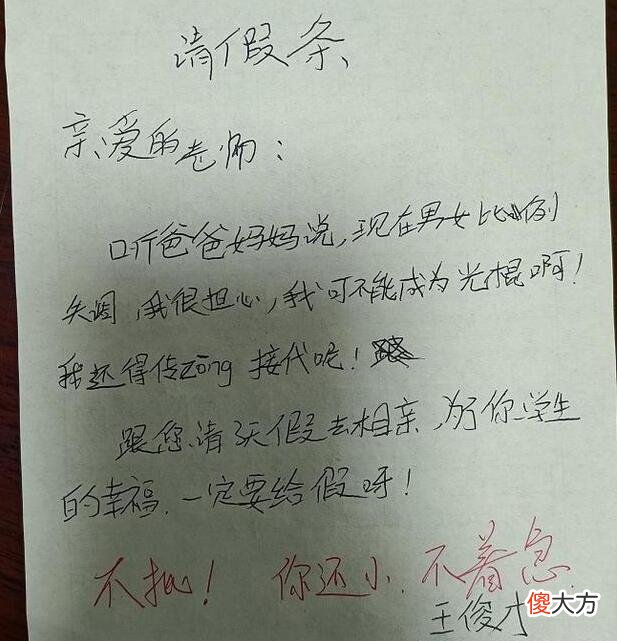 请假条
亲爱的老师:
听爸爸妈妈说,现在男女比例
失调,我很担心,我可不能成为光棍啊!
我还得传zōng接代呢!
跟您请3天假去相亲,为了你学生
的幸福,一定要给假呀!
不批! 你还小.不着急
王俊才
傻大方